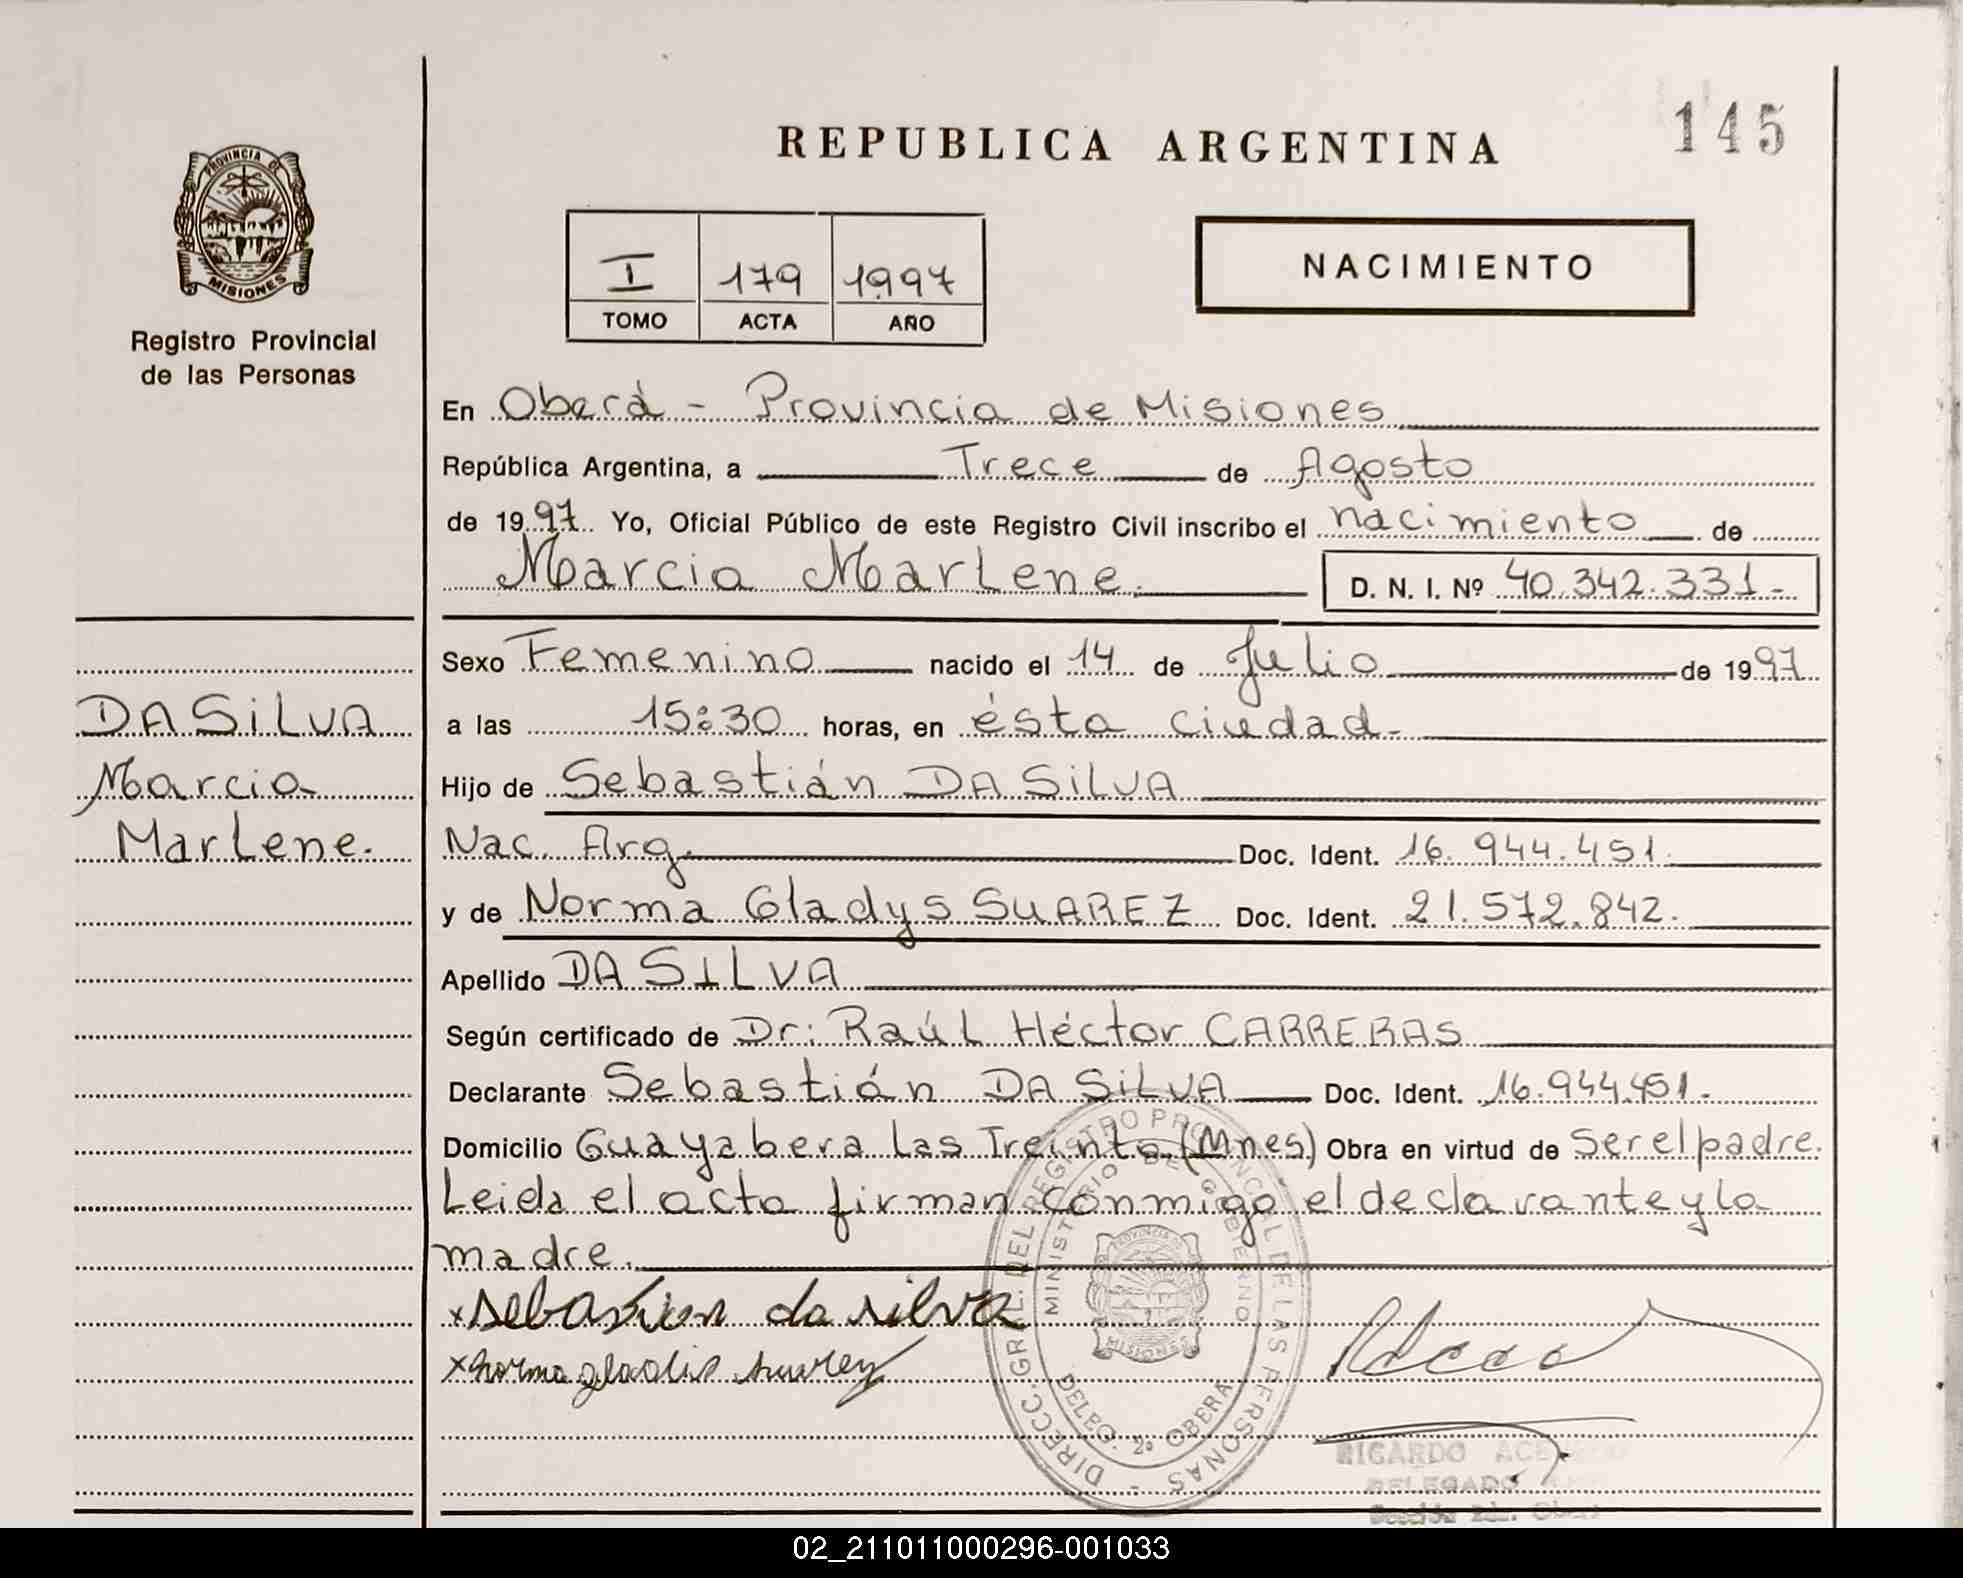 145
REPUBLICA ARGENTINA
PROVINCIA DE
MISIONES
Registro Provincial
de las Personas
I 179 1997
TOMO ACTA AÑO
NACIMIENTO
En Oberá - Provincia de Misiones
República Argentina, a Trece de Agosto
de 1997 Yo, Oficial Público de este Registro Civil inscribo el nacimiento de
Marcia Marlene. D. N. I. Nº 40.342.331-
Sexo Femenino nacido el 14 de Julio de 1997
a las 15:30 horas, en ésta ciudad-
Hijo de Sebastián DA SiLVA
Nac. Arg. Doc. Ident. 16.944.451.
y de Norma Gladys SUAREZ Doc. Ident. 21.572.842.
Apellido DA SILVA
Según certificado de Dr: Raúl Héctor CARRERAS
Declarante Sebastián DA SiLVA Doc. Ident. 16.944.451.
Domicilio Guayabera Las Treinta (Mnes) Obra en virtud de Ser el padre.
Leida el acta firman conmigo el declarante y la
madre.
x sebastian da silva
x norma gladis suarez
DA SiLVA
Marcia
Marlene.
DIRECC. GRAL. DEL REGISTRO PROVINCIAL DE LAS PERSONAS -
MINISTERIO DE GOBIERNO
PROVINCIA DE
MISIONES
DELEG. 2º OBERÁ
RICARDO
DELEGADO
02_211011000296-001033